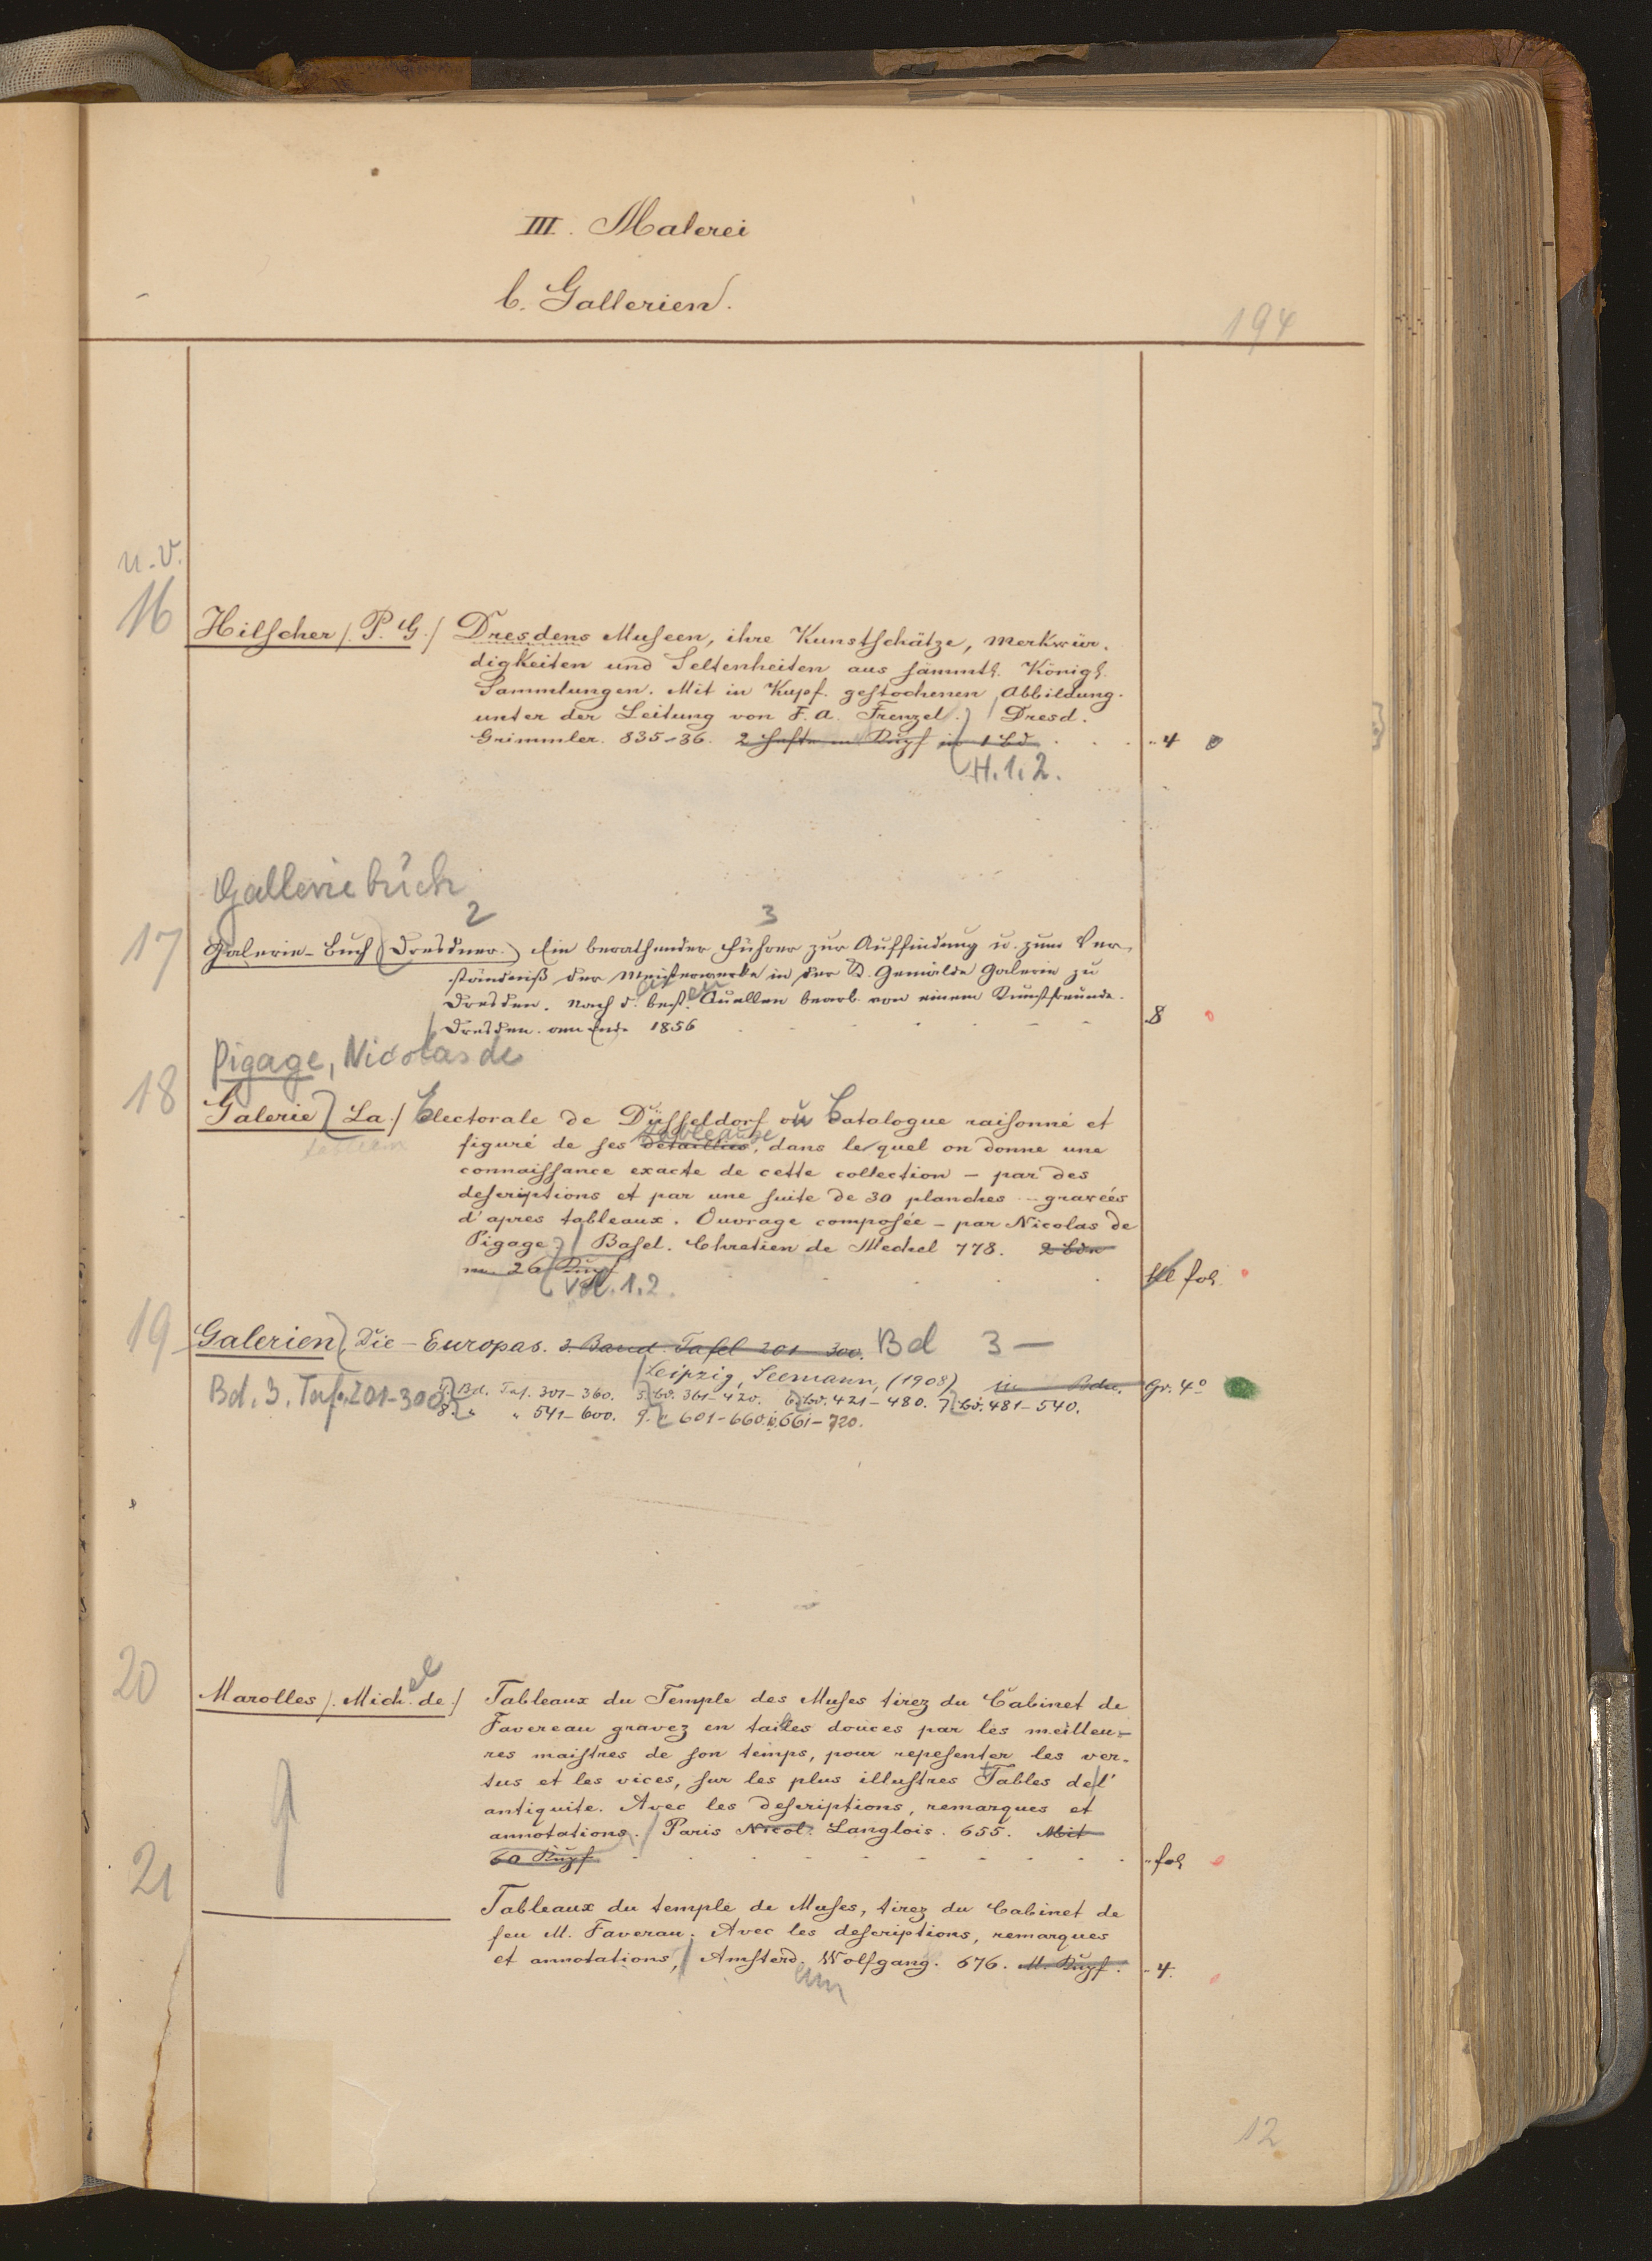 III. Malerei
b. Gallerien.
194
u. V.
16 Hilscher /. P. G./ Dresdens Museen, ihre Kunstschätze, Merkwür-
digkeiten und Seltenheiten aus sämmtl. Königl.
Sammlungen. Mit in Kupf. gestochenen Abbildung.
unter der Leitung von F. A. Frenzel.) / Dresd.
Grimmler. 835-36. 2 Hefte m Kupf in 1 Bd . . . „ 4
H. 1. 2.
Galleriebuch
2 3
17 Galerie-Buch (Dresdner.) Ein berathender Führer zur Auffindung u. zum Ver-
ständniß der Meisterwerke in der K. Gemälde Galerie zu
Dresden. Nach d. best. Quellen bearb. von einem Kunstfreunde.
/ Dresden. am Ende 1856 8
Pigage, Nicolas de
18 Galerie) La / Electorale de Düsseldorf ou Catalogue raisonné et
figuré de ses detaillies, tableaux dans le quel on donne une
connaissance exacte de cette collection – par des
descriptions et par une suite de 30 planches – gravées
d'apres tableaux. Ouvrage composée – par Nicolas de
Pigage) / Basel. Chretien de Mechel 778. 2 Bde
m 26 Kupf fol
Vol. 1. 2.
19 Galerien) Die – Europas. 3. Band. Tafel 201–300. Bd 3 –
/ Leipzig, Seemann, (1908) in Bdn. Gr. 4°
Bd. 3. Taf. 201-300. Bd. Taf. 301–360. 5. Bd. 361–420. 6. Bd. 421–480. 7. Bd. 481–540.
8. „ „ 541–600. 9. „ 601–660. 661–720.
20 Marolles /. Mich. el de./ Tableaux du Temple des Muses tirez du Cabinet de
Favereau gravez en tailles douces par les meilleu-
res maistres de son temps, pour repesenter les ver-
tus et les vices, sur les plus illustres Fables de l'
antiquite. Avec les descriptions, remarques et
annotations. / Paris Nicol. Langlois. 655. Mit
60 Kupf „ fol
21
Tableaux du temple de Muses, tirez du Cabinet de
feu M. Faverau. Avec les descriptions, remarques
et annotations, / Amsterd. am Wolfgang. 676. M. Kupf. „ 4.
12